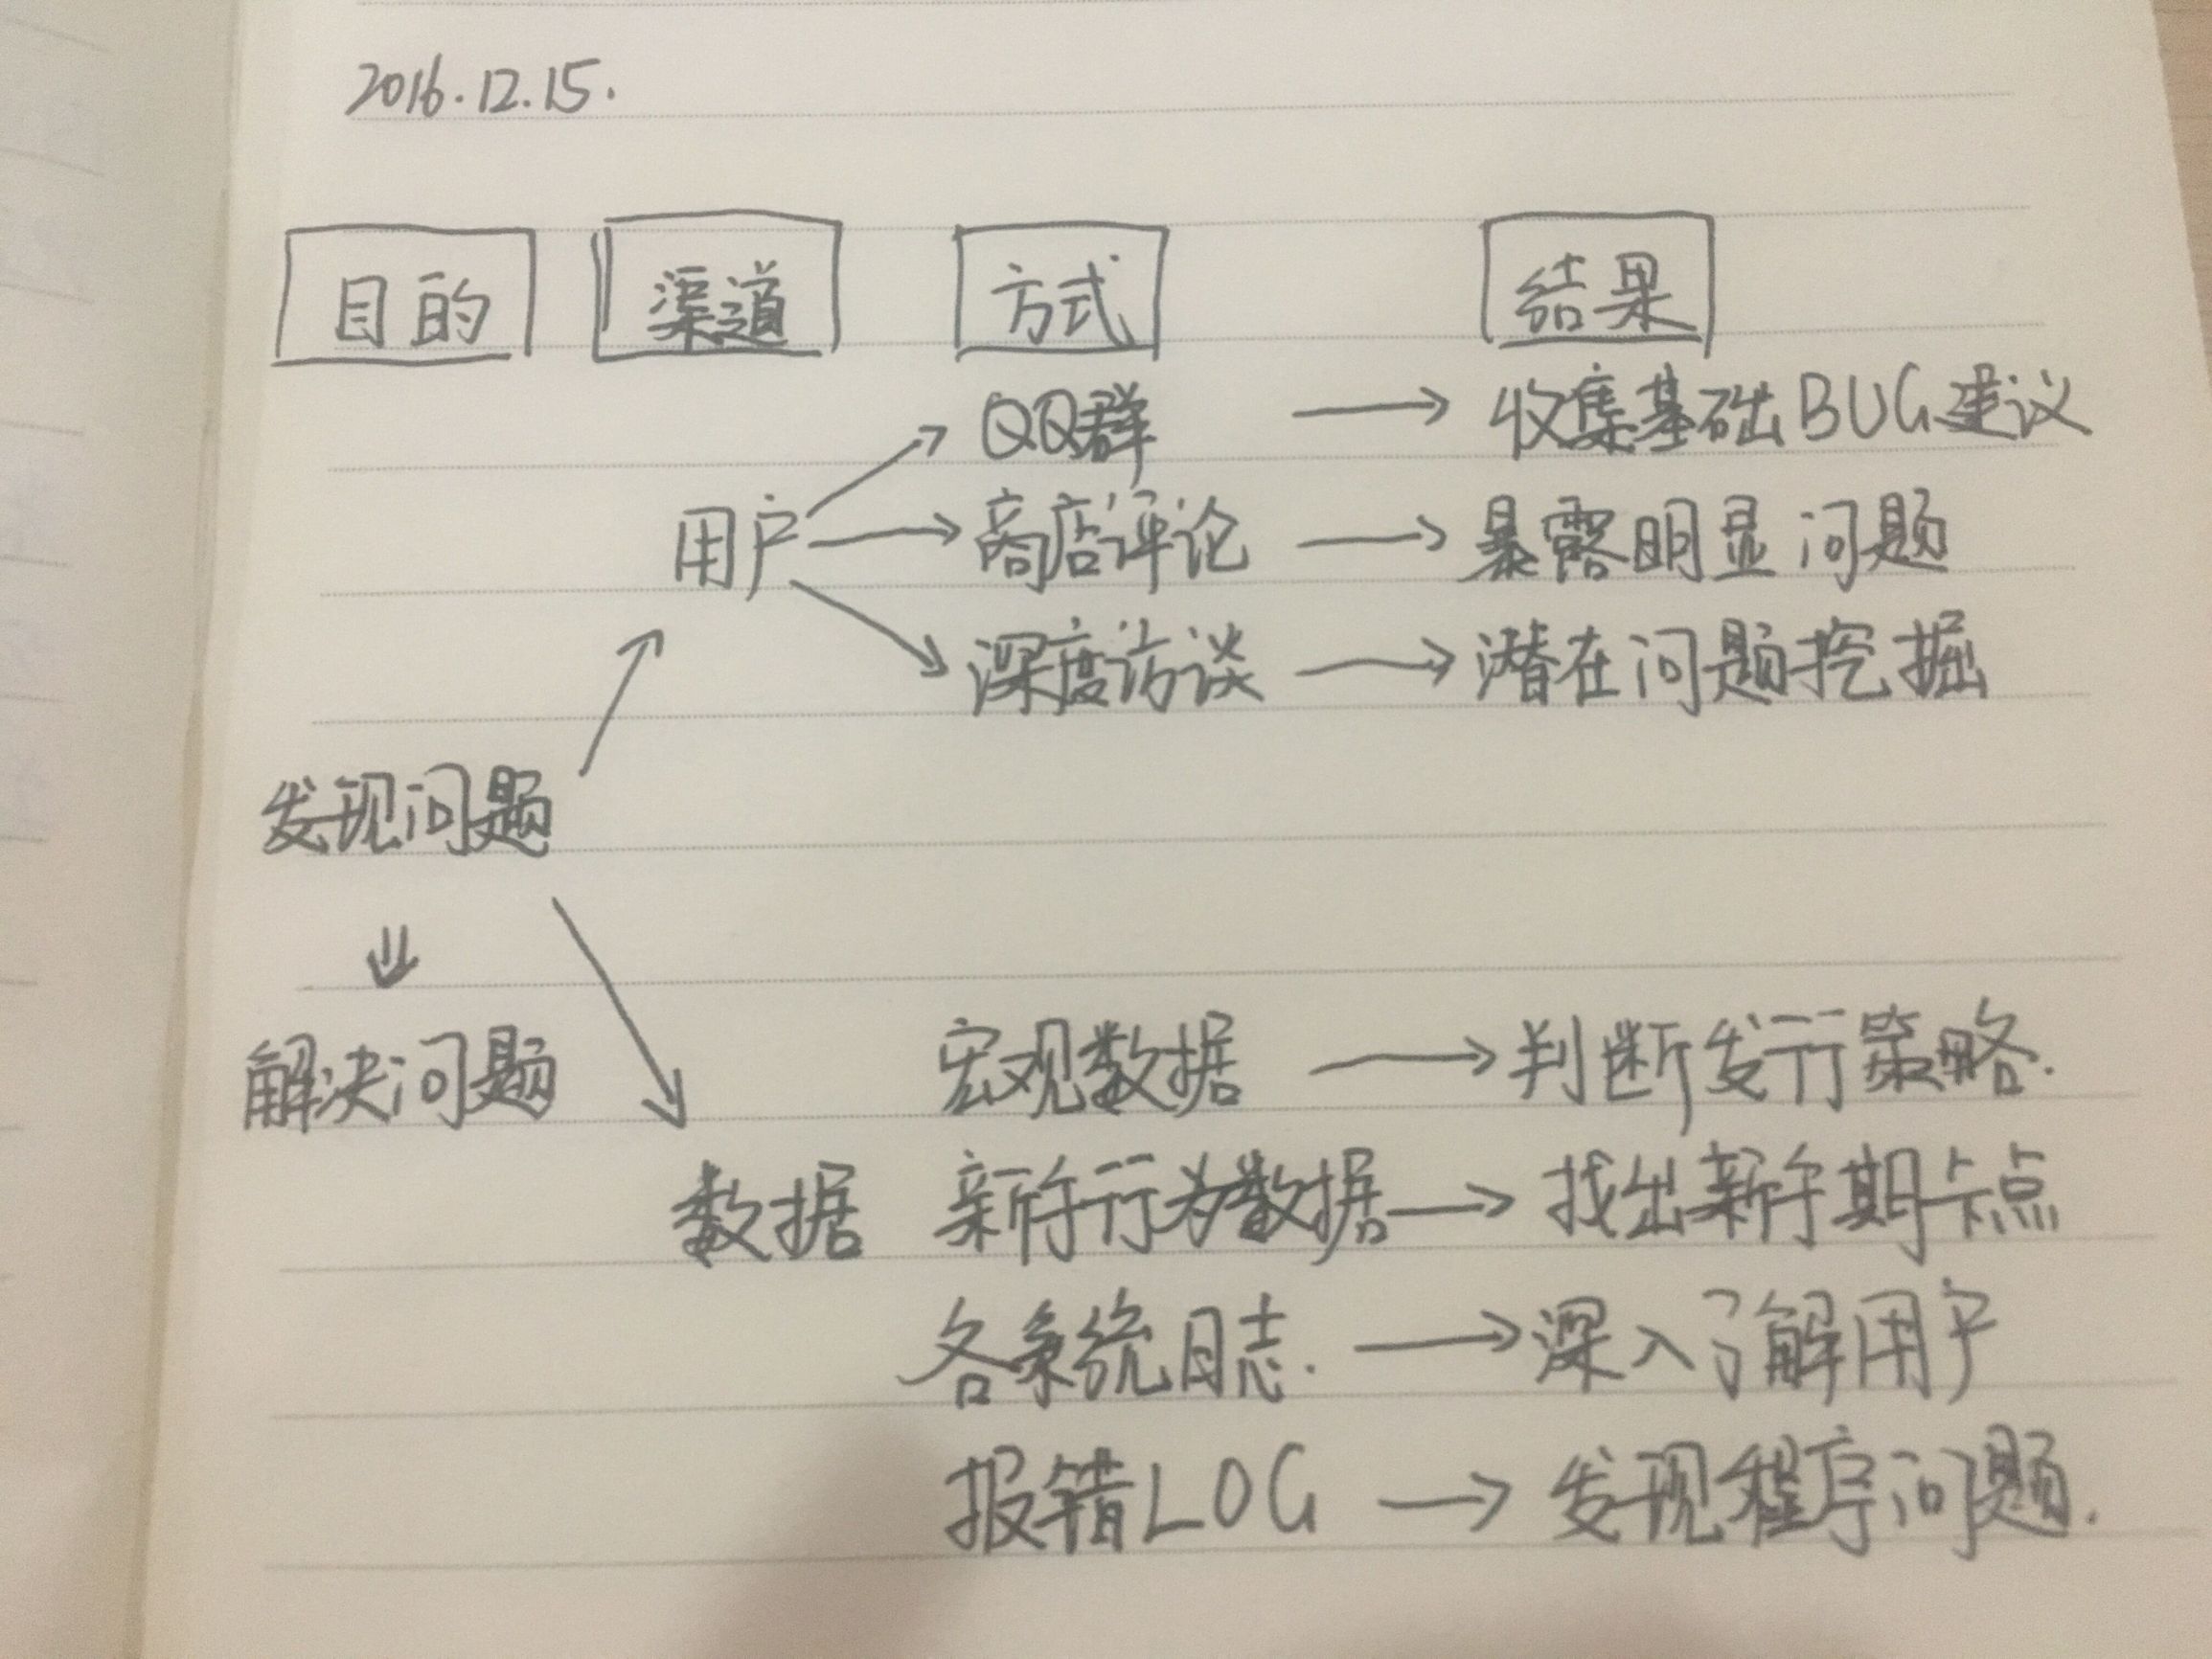 2016.12.15.
目的 渠道 方式 结果
QQ群 → 收集基础BUG建议
用户 → 商店评论 → 暴露明显问题
深度访谈 → 潜在问题挖掘
发现问题
⇓
解决问题
宏观数据 → 判断发行策略.
数据 新手行为数据 → 找出新手期卡点
各系统日志. → 深入了解用户
报错LOG → 发现程序问题.